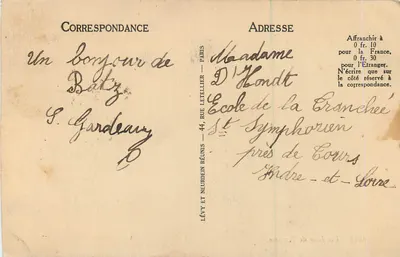 CORRESPONDANCE
Un bonjour de
Batz
G. Gardeau
LÉVY ET NEURDEIN RÉUNIS — 44, RUE LETELLIER — PARIS
ADRESSE
Affranchir à
0 fr. 10
pour la France,
0 fr. 30
pour l'Étranger.
N'écrire que sur
le côté réservé à
la correspondance.
Madame
D'Hondt
Ecole de la Tranchée
St Symphorien
près de Tours
Indre-et-Loire